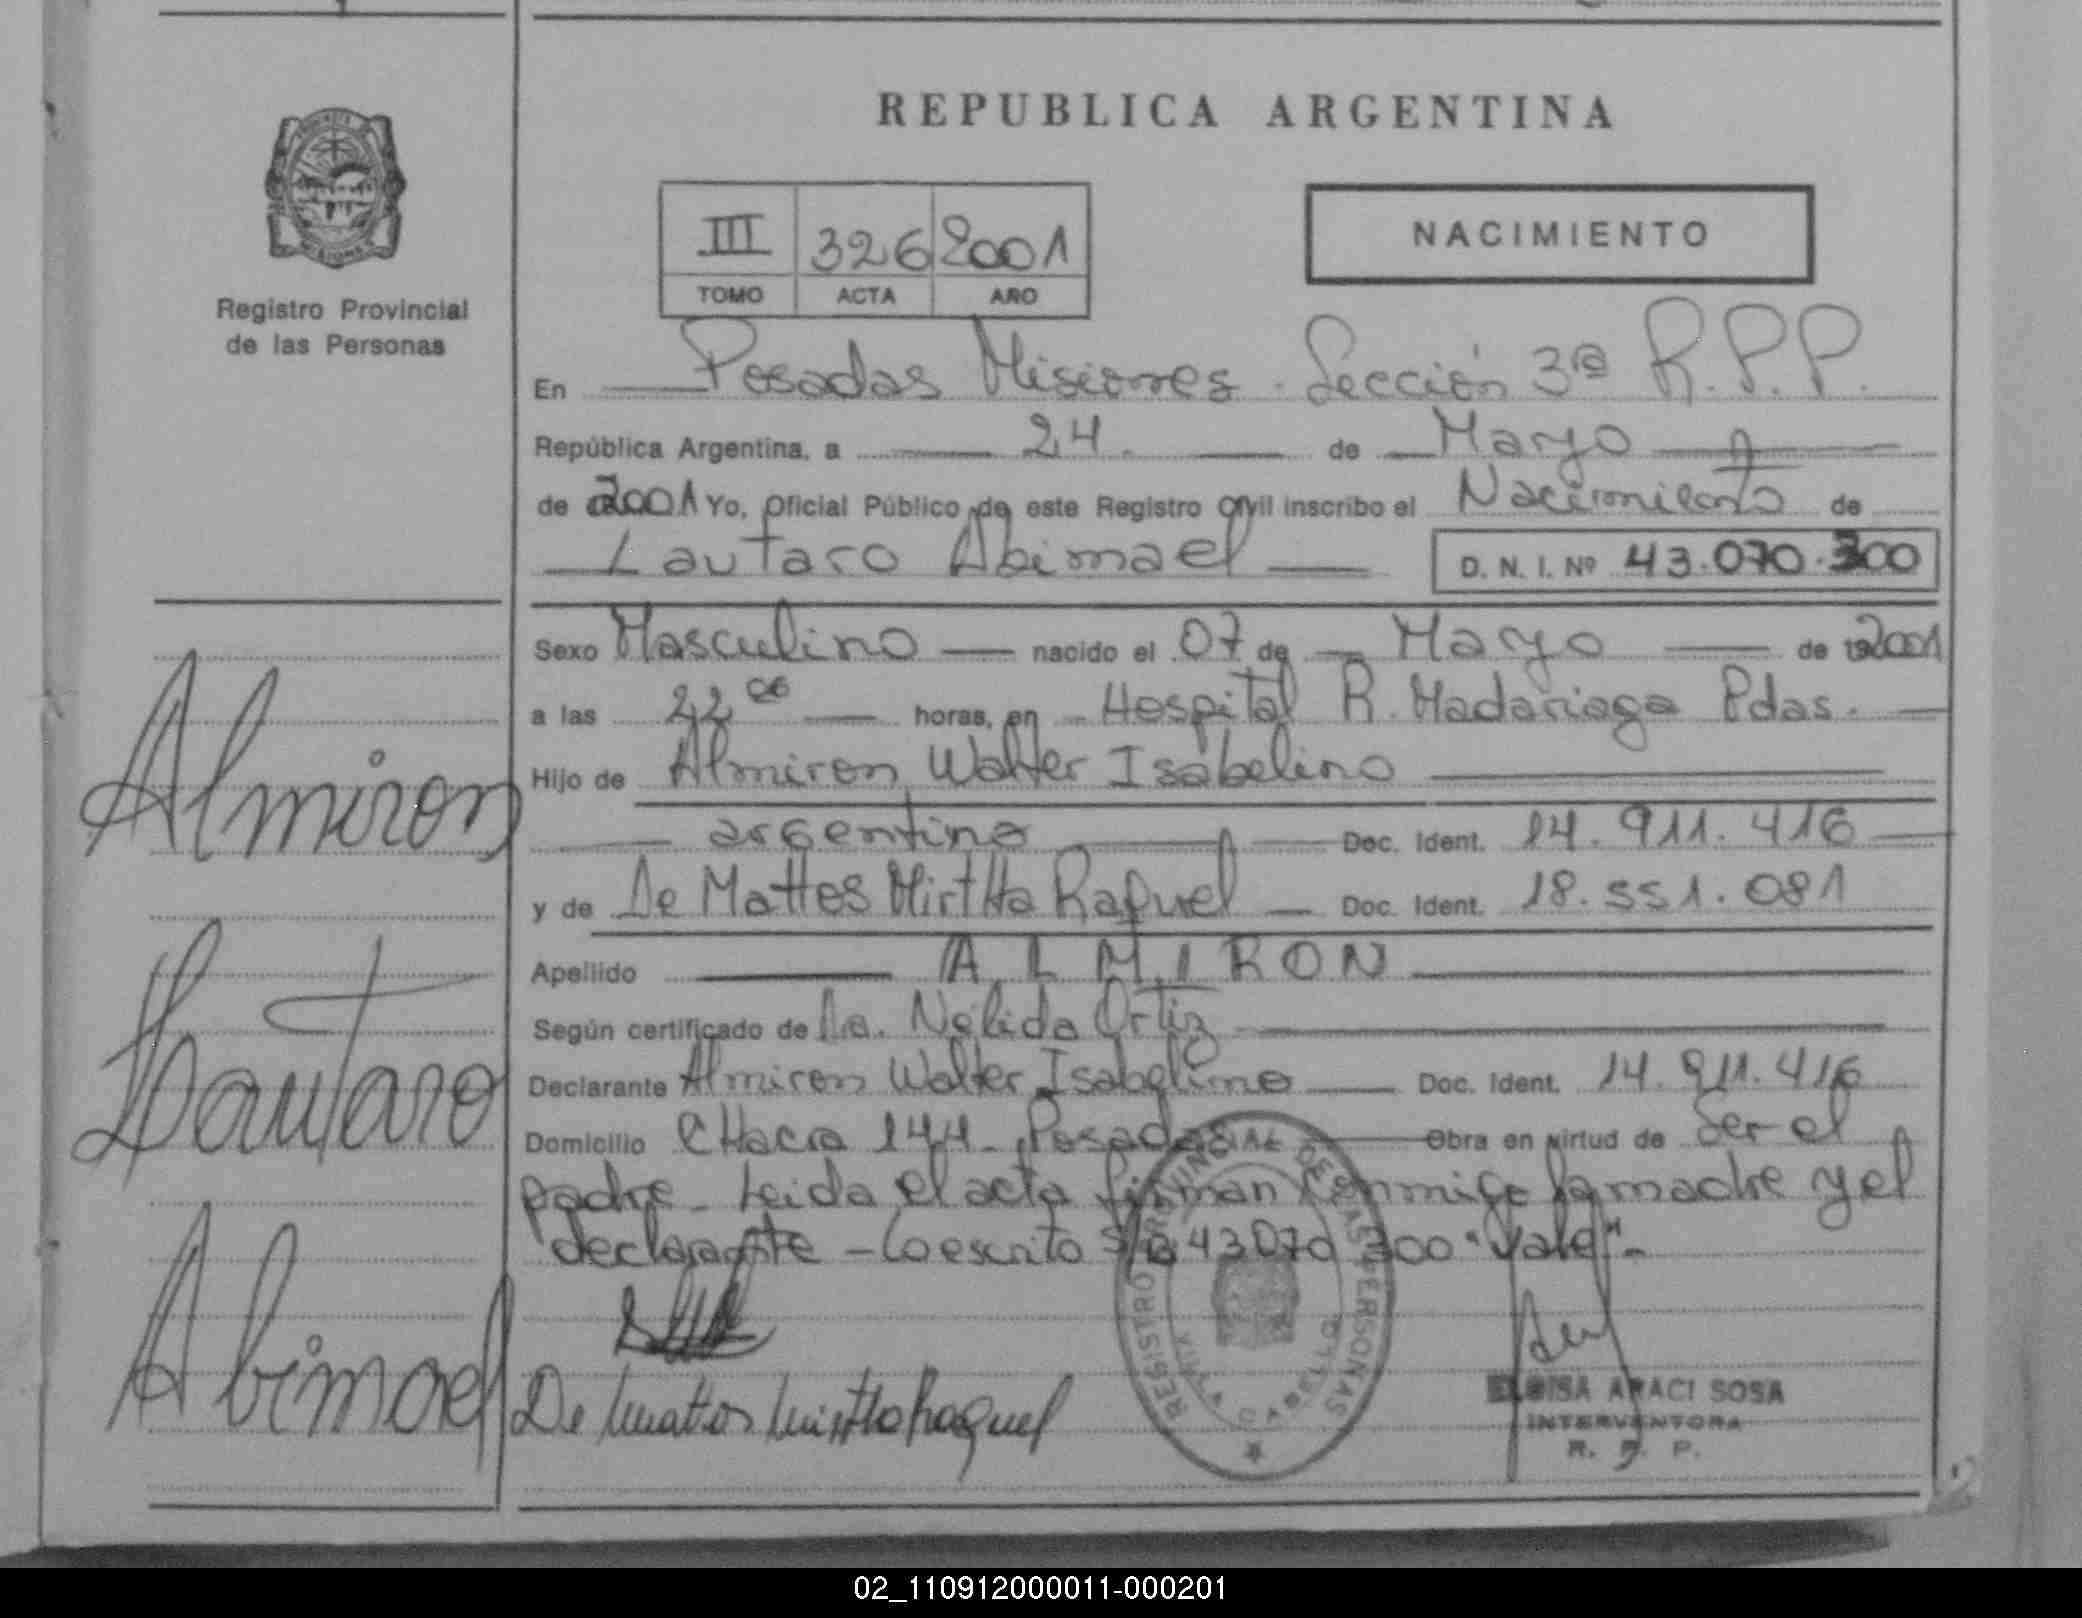 REPUBLICA ARGENTINA
III 326 2001
TOMO ACTA AÑO
NACIMIENTO
Registro Provincial
de las Personas
En Posadas Misiones. Sección 3ª R.P.P.
República Argentina, a 24. de Mayo
de 2001 Yo, Oficial Público de este Registro Civil inscribo el Nacimiento de
Lautaro Abimael D. N. I. Nº 43.070.300
Sexo Masculino nacido el 07 de Mayo de 2001
a las 22 horas, en Hospital R. Madariaga Pdas.
Hijo de Almiron Walter Isabelino
argentino Doc. Ident. 14.911.416
y de De Mattos Mirtha Raquel Doc. Ident. 18.551.081
Apellido ALMIRON
Según certificado de Nelida Ortiz
Declarante Almiron Walter Isabelino Doc. Ident. 14.911.416
Domicilio CHacra 144 - Posadas Obra en virtud de Ser el
padre - Leida el acta firman conmigo la madre y el
declarante - Lo escrito S/R 43070300 "Vale" -
Almiron
Lautaro
Abimael
De Mattos Mirtha Raquel
REGISTRO PROVINCIAL DE LAS PERSONAS
VILLA CABELLO
ELOISA ARACI SOSA
INTERVENTORA
R. P. P.
02_110912000011-000201